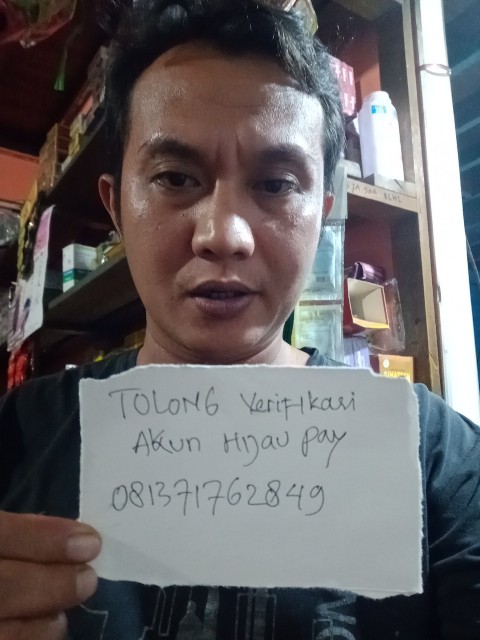 TOLONG Verifikasi
Akun Hijau pay
081371762849